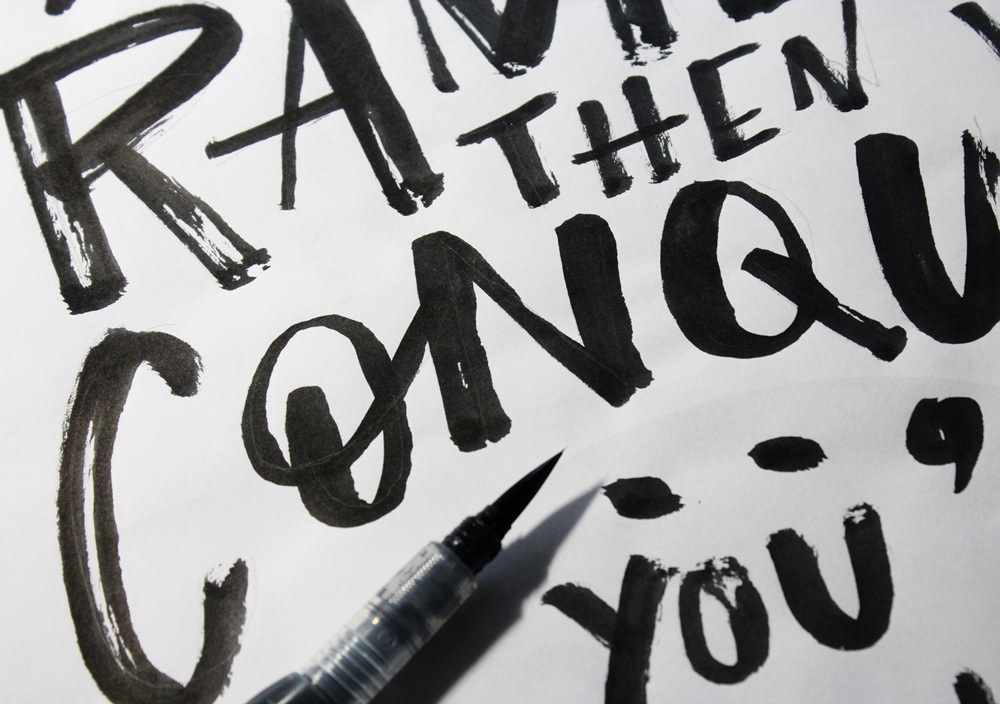 RAM
THEN
CONQU
YOU